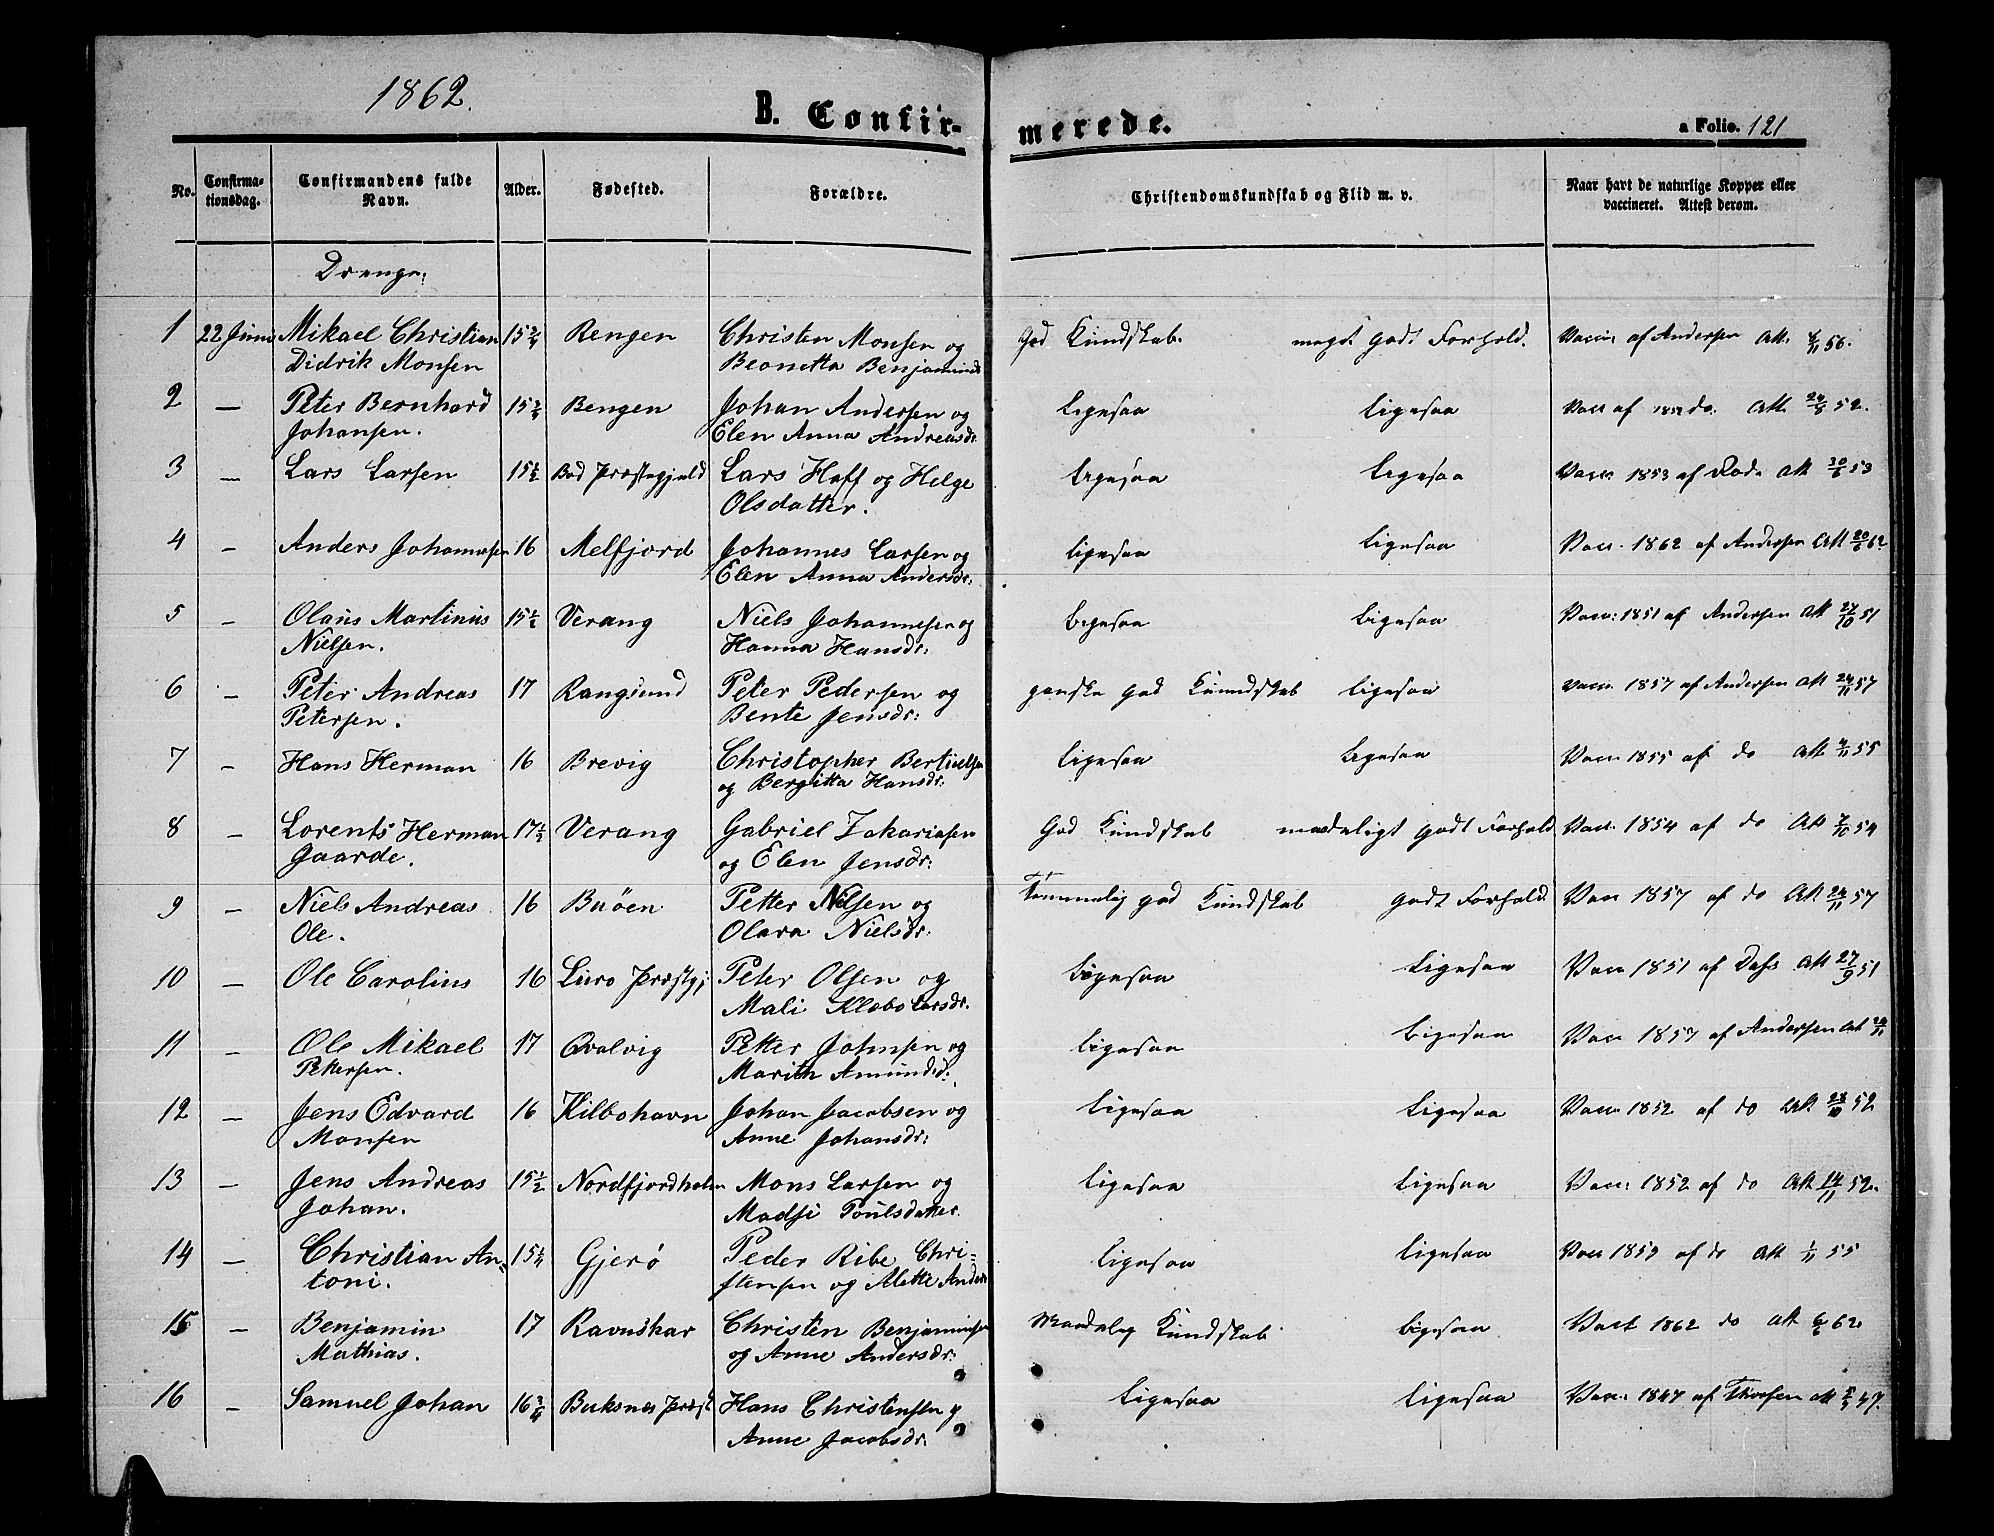 1862.
B. Confir-
merede.
a Folio. 121
No.
Confirma-
tionsdag.
Confirmandens fulde
Navn.
Alder.
Fødested.
Forældre.
Christendomskundskab og Flid m. v.
Naar havt de naturlige Kopper eller
vaccineret. Attest derom.
Drenge:
1 22 Juni Mikael Christian 15 3/4 Rengen Christen Monsen og God Kundskab. meget godt Forhold. Vaccin af Andersen Att. 56.
Didrik Monsen Benjamins
2 — Peter Bernhard 15 3/4 Bengen Johan Andersen og Ligesaa Ligesaa Vacc af do. Att. 24/8 52.
Johansen. Elen Anna Andreasdr.
3 — Lars Larsen 15 1/2 Bod Præstegjeld Lars Hoff og Helge Ligesaa Ligesaa Vacc. 1853 af Att 30/6 53
Olsdatter.
4 — Anders Johannesen 16 Melfjord Johannes Larsen og Ligesaa Ligesaa Vacc. 1862 af Andersen Att 20/6 62
Elen Anna Andersdr.
5 — Olaus Martinus 15 1/2 Verang Niels Johannesen og Ligesaa Ligesaa Vacc: 1851 af Andersen Att 27/10 51
Nielsen. Hanna Hansdr:
6 — Peter Andreas 17 Rangsund Peter Pedersen og ganske god Kundskab Ligesaa Vacc. 1857 af Andersen Att 24/11 57
Petersen. Bente Jensdr:
7 — Hans Herman 16 Brevig Christopher Bertielsen Ligesaa Ligesaa Vacc. 1855 af do Att 55
og Bergitta Hansdr:
8 — Lorents Herman 17 1/2 Verang Gabriel Zakariasen God Kundskab maadeligt godt Forhold Vacc. 1854 af do Att 7/10 54
Gaarde. og Elen Jensdr:
9 — Niels Andreas 16 Buöen Petter Nilsen og Temmelig god Kundskab godt Forhold. Vacc 1857 af do Att 24/11 57
Ole. Olava Nielsdr.
10 — Ole Carolius 16 Luro Præstgj: Peter Olsen og Ligesaa Ligesaa Vacc 1851 af Dass Att 27/9 51
Mali Klæbo Larsdr.
11 — Ole Mikael 17 Qvalvig Petter Johnsen og Ligesaa Ligesaa Vacc 1857 af Andersen Att 24/11
Pettersen. Marith Amundsd:
12 — Jens Edvard 16 Kilbohavn Johan Jacobsen og Ligesaa Ligesaa Vacc. 1852 af do Att 28/10 52
Monsen Anne Johansdr:
13 — Jens Andreas 15 1/2 Nordfjordholm Mons Larsen og Ligesaa Ligesaa Vacc: 1852 af do Att 14/11 52.
Johan. Madsi Poulsdatter.
14 — Christian An- 15 1/4 Gjerö Peder Ribe Chri- Ligesaa Ligesaa Vacc af do Att 1/11 55
toni. stensen og Alette Anders
15 — Benjamin 17 Ravnskar Christen Benjaminsen Maadelig Kundskab Ligesaa Vacc 1862 do Att 62
Mathias. og Anne Andersdr:
16 — Samuel Johan 16 3/4 Buksnes Præst Hans Christensen og Ligesaa Ligesaa Vacc: 1847 af Att 47.
Anne Jacobsdr.